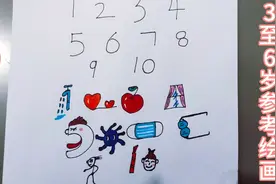 1 2 3 4
5 6 7 8
9 10
3至6岁参考绘画